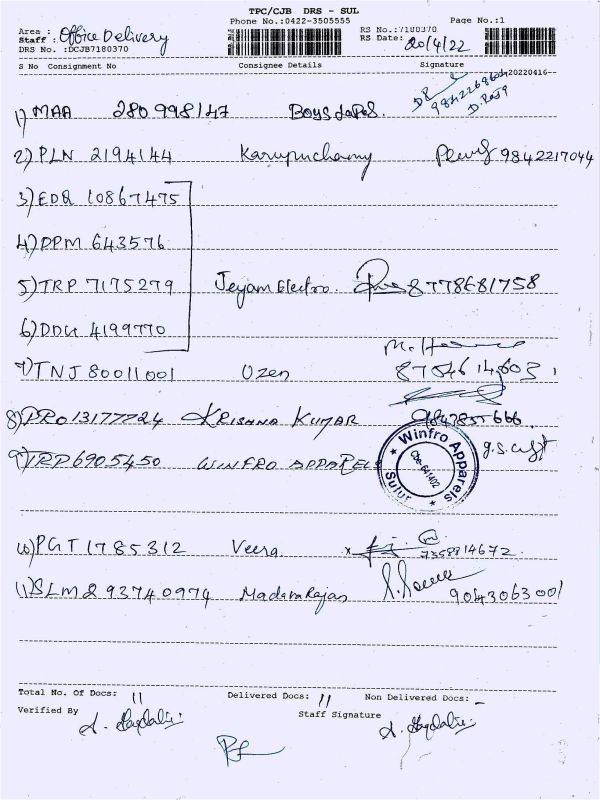 TPC/CJB DRS - SUL
Phone No.:0422-3505555 Page No.:1
Area : Office Delivery RS No.:7180370
Staff : RS Date: 20/4/22
DRS No. :DCJB7180370
S No Consignment No Consignee Details Signature
20220416-
9842268604
D. Raja
1) MAA 280998147 Boys
2) PLN 2194144 Karupuchamy 9842217044
3) EDR 10867475
4) DPM 643576
5) TRP 7175279 Jeyam Electro. 8778681758
6) DDG 4199770
7) TNJ 80011001 Uzen 8754614603
8) PRO 13177724 KRISHNA KUMAR 9847855666
9) TRP 6905450 WINFRO APPARELS
Winfro Apparels
Cbe-641402
Sulur
10) PGT 1785312 Veera. x 7358914672.
11) SLM 293740974 Madavarajan 9043063001
Total No. Of Docs: 11 Delivered Docs: 11 Non Delivered Docs: -
Verified By Staff Signature